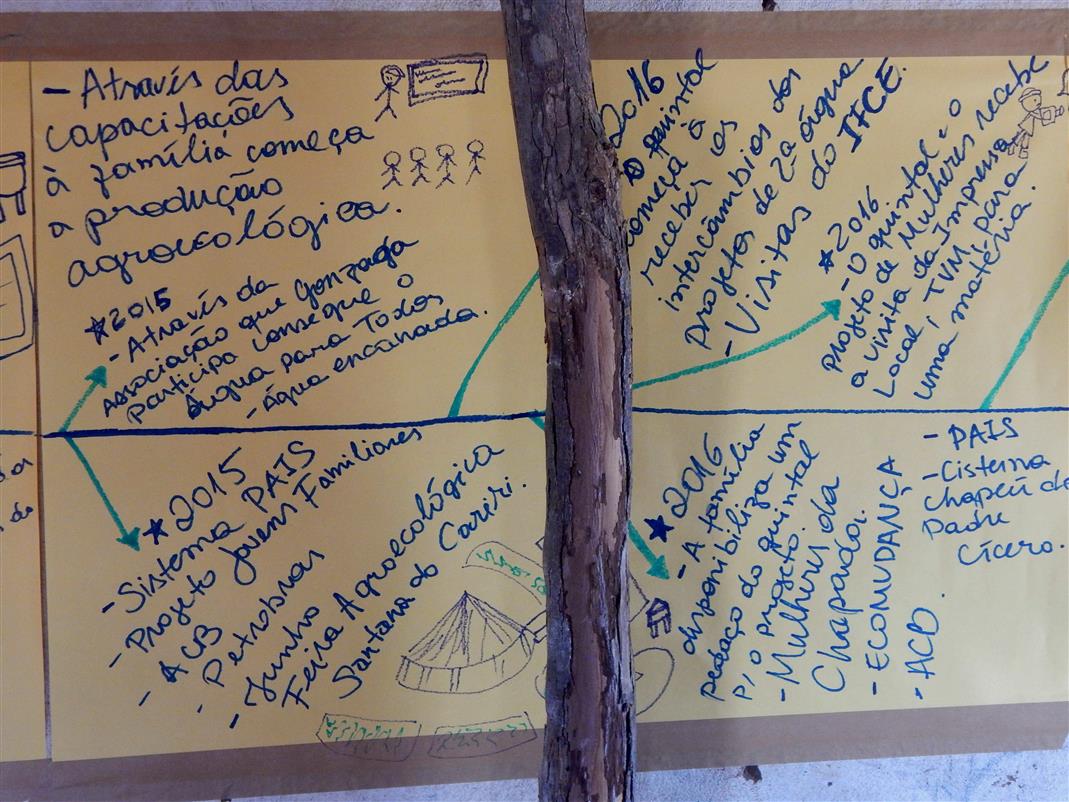 - Através das
capacitações
à família começa
a produção
agroecológica.
★2015
- Através da
Associação que Gonzaga
participa consegue o
Água para Todos
- Água encanada.
2016
O quintal
começa à
receber os
intercâmbios dos
projetos de 2ª água
- Visitas do IFCE.
★2016
- O quintal e o
projeto de Mulheres recebe
a visita da Imprensa
Local, TVM, para
uma matéria.
★2015
- Sistema PAIS
- Projeto Jovens Familiares
- ACB
- Petrobras
- Junho
Feira Agroecológica
Santana do Cariri.
★2016
- A família
disponibiliza um
pedaço do quintal
p/ o projeto
- Mulheres da
Chapada.
- ECOMUDANÇA
- ACD.
- PAIS
- Cisterna
Chapéu de
Padre
Cícero.